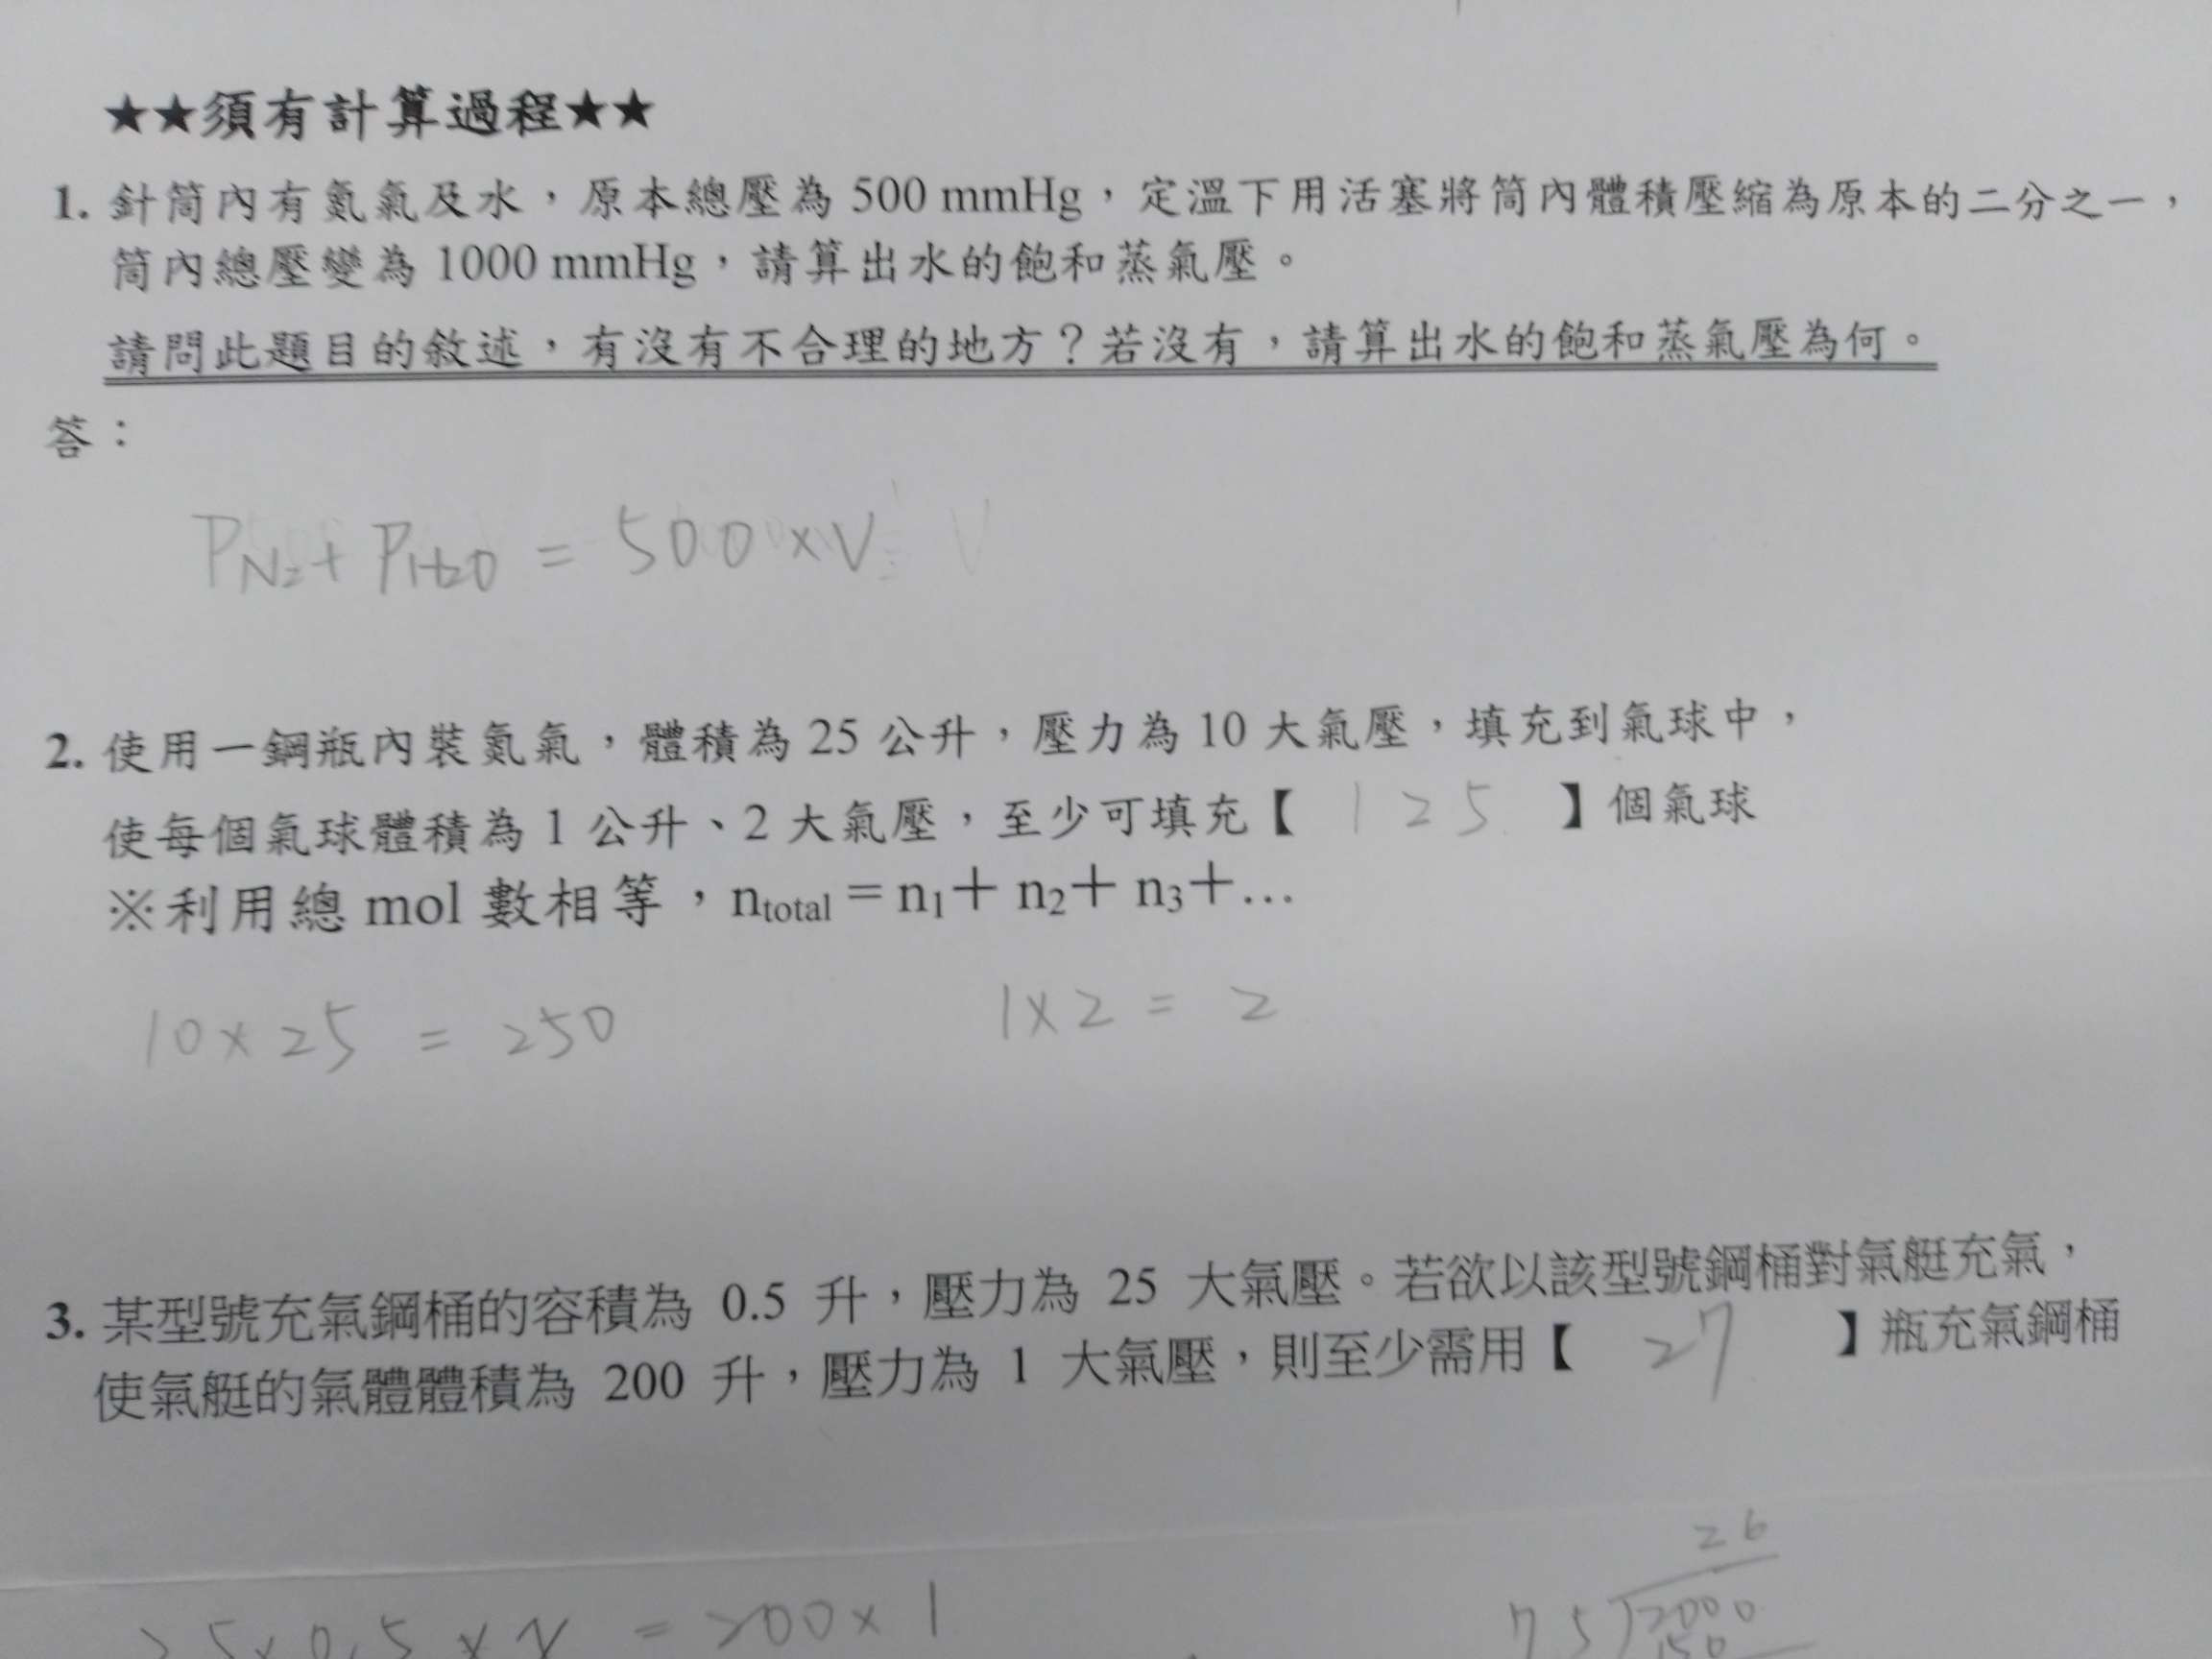 ★★須有計算過程★★
1. 針筒內有氮氣及水，原本總壓為 500 mmHg，定溫下用活塞將筒內體積壓縮為原本的二分之一，
筒內總壓變為 1000 mmHg，請算出水的飽和蒸氣壓。
請問此題目的敘述，有沒有不合理的地方？若沒有，請算出水的飽和蒸氣壓為何。
答：
PN₂ + PH₂O = 500 × V
2. 使用一鋼瓶內裝氮氣，體積為 25 公升，壓力為 10 大氣壓，填充到氣球中，
使每個氣球體積為 1 公升、2 大氣壓，至少可填充【 125 】個氣球
※利用總 mol 數相等，ntotal = n1＋ n2＋ n3＋…
10 × 25 = 250 1 × 2 = 2
3. 某型號充氣鋼桶的容積為 0.5 升，壓力為 25 大氣壓。若欲以該型號鋼桶對氣艇充氣，
使氣艇的氣體體積為 200 升，壓力為 1 大氣壓，則至少需用【 27 】瓶充氣鋼桶
26
25 × 0.5 × N = 200 × 1 75 2000
150